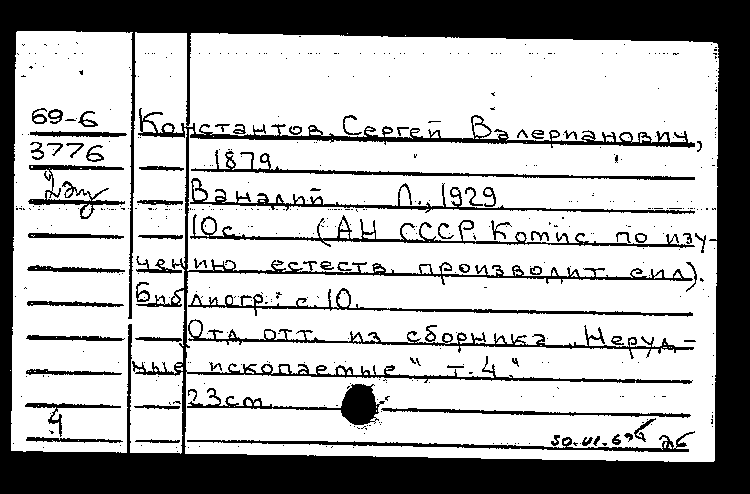 69-6
Константов, Сергей Валерианович,
3776
1879.
2 экз
Ванадий. Л., 1929.
10с. (АН СССР. Комис. по изу-
чению естеств. производит. сил).
Библиогр.: с. 10.
Отд. отт. из сборника „Неруд-
ные ископаемые", т. 4."
23см.
4